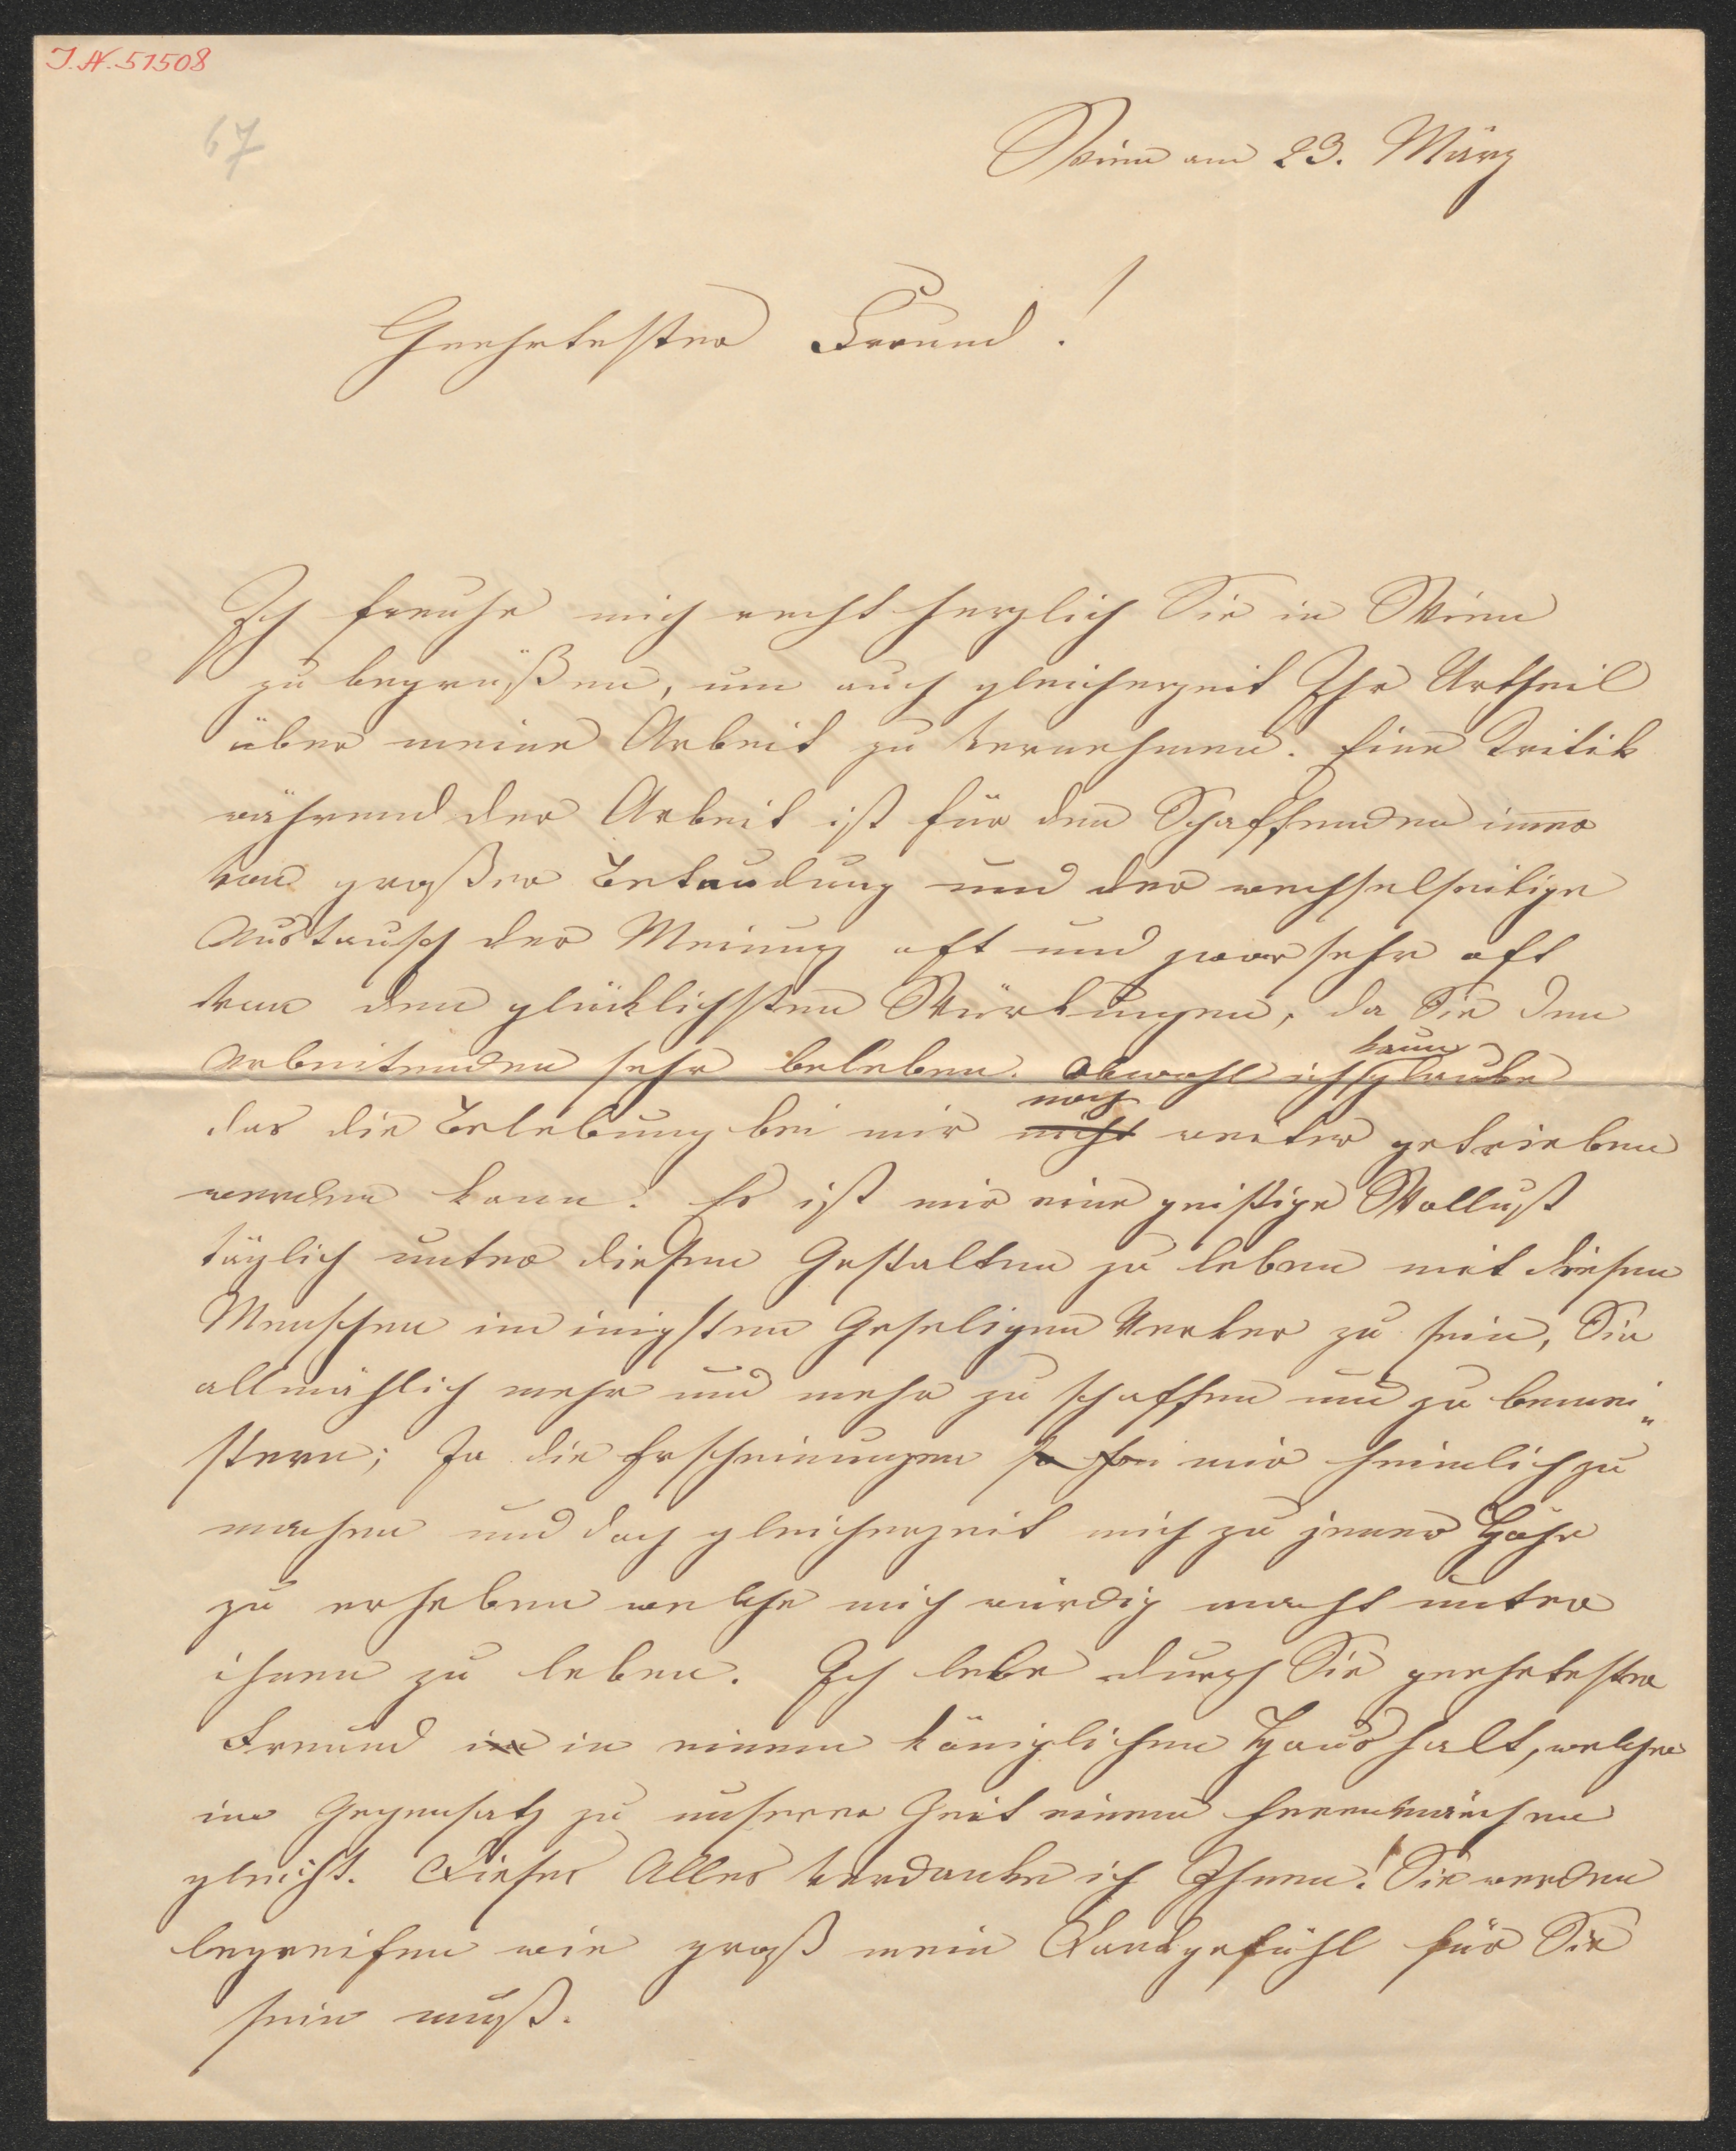 I.N. 51508
67
Wien am 23. März
Geehrtester Freund!
Ich freuhe mich recht herzlich Sie in Wien
zu begrüßen, um auch gleicherzeit Ihr Urtheil
über meine Arbeit zu vernehmen. Eine Kritik
während der Arbeit ist für den Schaffenden imer
von großer Bedeudung und der wechselseitige
Austausch der Meinung oft und zwar sehr oft
von den glücklichsten Würkungen, da Sie den
kaum
Arbeitenden sehr beleben. Obwohl ich glaube
noch
das die Belebung bei mir nicht weiter getrieben
werden kann. Es ist mir eine geistige Wollust
täglich unter diesen Gestalten zu leben mit diesen
Menschen im inigsten Geseligen Verker zu sein, Sie
allmählich mehr und mehr zu schaffen und zu bemei„
stern; Ja die Erscheinungen so mir heimlich zu
machen und doch gleicherzeit mich zu jener Höhe
zu erheben welche mich würdig macht unter
ihnen zu leben. Ich lebe durch Sie geehrtester
Freund in in einem königlichen Haushalt, welcher
im Gegensatz zu unserer Zeit einem Feenmärchen
gleicht. Dieses Alles verdanke ich Ihnen! Sie werden
begreifen wie groß mein Dankgefühl für Sie
sein muß.